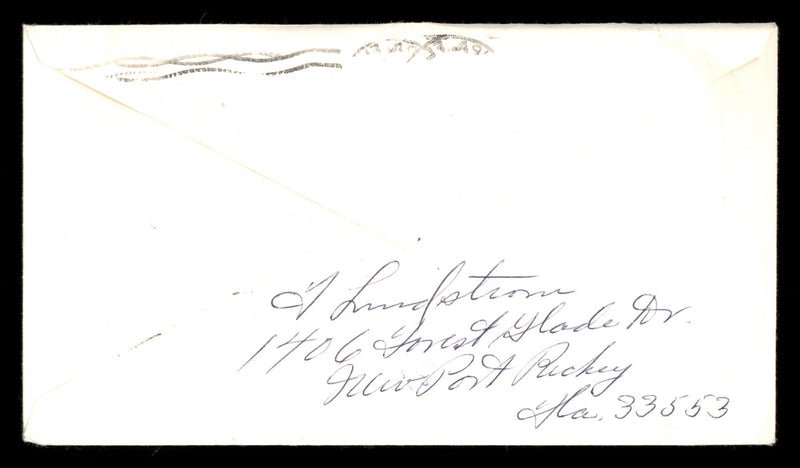 T Lundstrom
1406 Forest Glade Dr.
New Port Richey
Fla. 33553